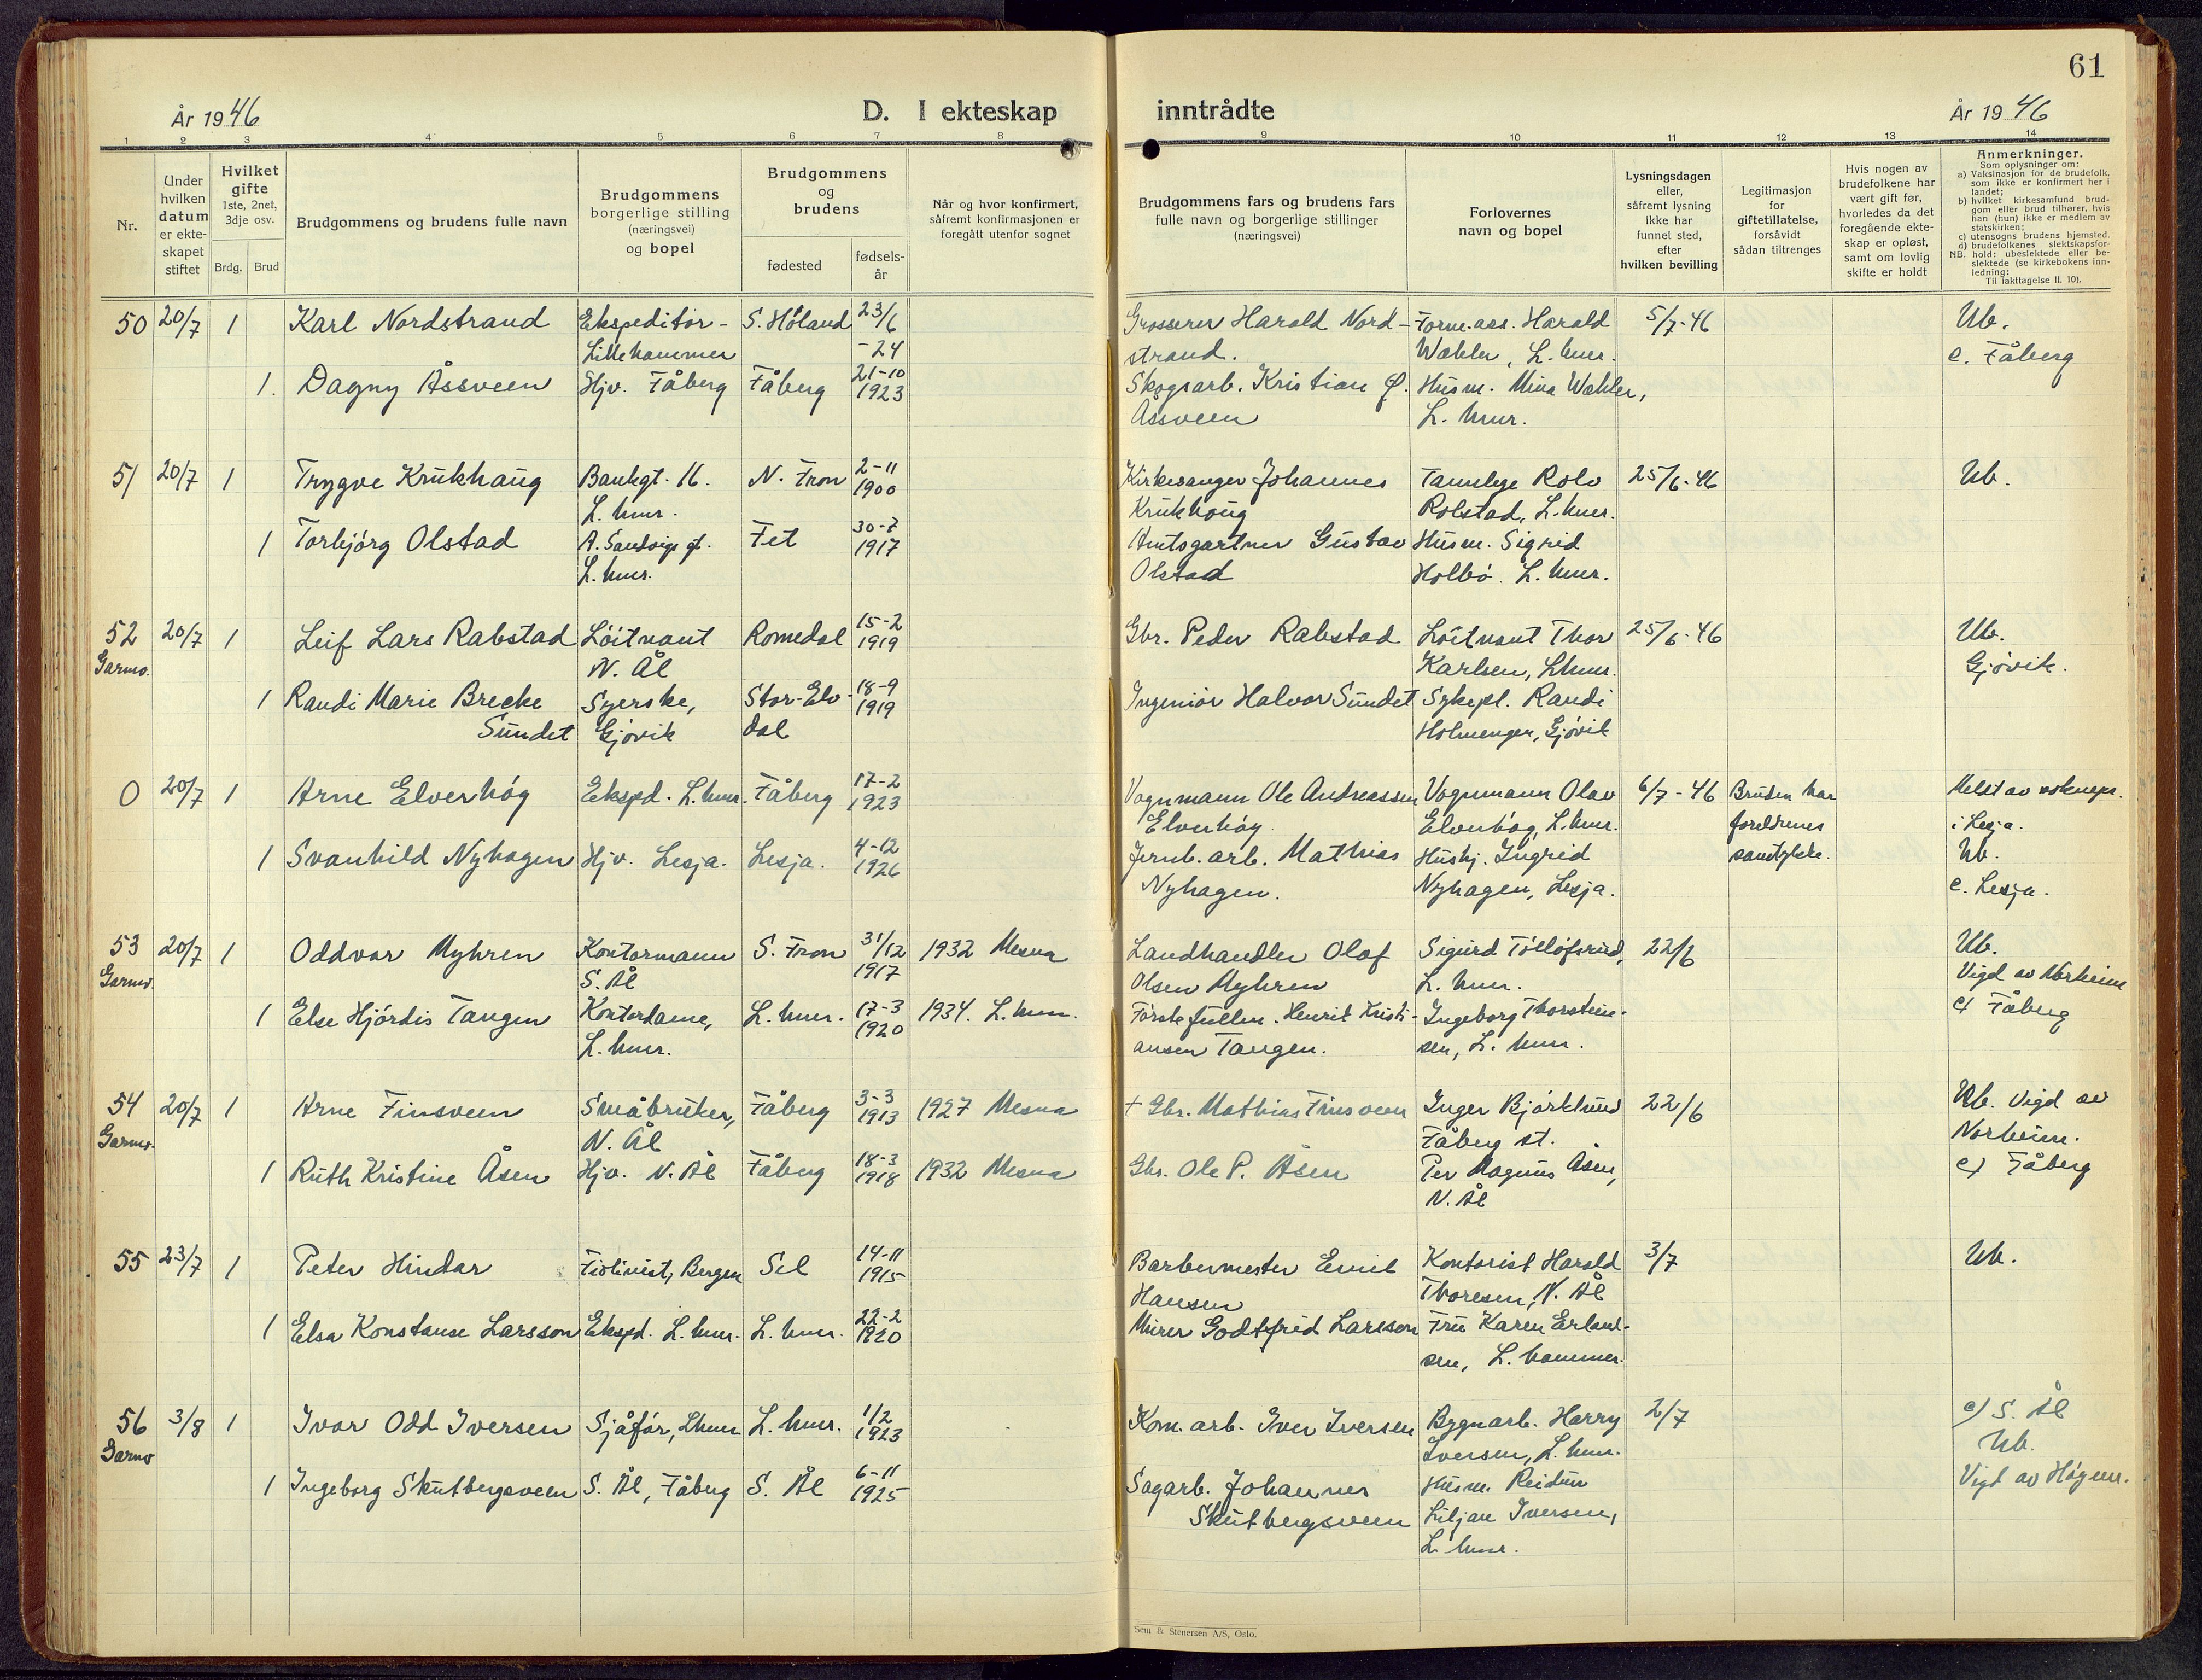 61
År 1946
D. I ekteskap
inntrådte
År 1946
1 2 3 4 5 6 7 8 9 10 11 12 13 14
Nr.
Under
hvilken
datum
er ekte-
skapet
stiftet
Hvilket
gifte
1ste, 2net,
3dje osv.
Brdg. Brud
Brudgommens og brudens fulle navn
Brudgommens
borgerlige stilling
(næringsvei)
og bopel
Brudgommens
og
brudens
fødested
fødsels-
år
Når og hvor konfirmert,
såfremt konfirmasjonen er
foregått utenfor sognet
Brudgommens fars og brudens fars
fulle navn og borgerlige stillinger
(næringsvei)
Forlovernes
navn og bopel
Lysningsdagen
eller,
såfremt lysning
ikke har
funnet sted,
efter
hvilken bevilling
Legitimasjon
for
giftetillatelse,
forsåvidt
sådan tiltrenges
Hvis nogen av
brudefolkene har
vært gift før,
hvorledes da det
foregående ekte-
skap er opløst,
samt om lovlig
skifte er holdt
Anmerkninger.
Som oplysninger om:
a) Vaksinasjon for de brudefolk,
som ikke er konfirmert her i
landet;
b) hvilket kirkesamfund brud-
gom eller brud tilhører, hvis
han (hun) ikke er medlem av
statskirken;
c) utensogns brudens hjemsted.
d) brudefolkenes slektskapsfor-
NB. hold: ubeslektede eller be-
slektede (se kirkebokens inn-
ledning:
Til iakttagelse II. 10).
50 20/7 1 Karl Nordstrand Ekspeditør- S. Høland 23/6 Grosserer Harald Nord- Forn.ass. Harald 5/7-46 Ub.
Lillehammer -24 strand. Wæhler, L. hmr. c. Fåberg
1. Dagny Åssveen Hjv. Fåberg Fåberg 21-10 1923 Skogsarb. Kristian Ø. Husm. Mina Wæhler,
Åssveen L. hmr.
51 20/7 1 Trygve Krukhaug Bankgt. 16. N. Fron 2-11 1900 Kirkesanger Johannes Tannlege Rolv 25/6-46 Ub.
L. hmr. Krukhaug Rolstad, L. hmr.
1 Torbjørg Olstad A. Sandvigs gt. Fet 30-7 1917 Amtsgartner Gustav Husm. Sigrid
L. hmr. Olstad Holbø. L. hmr.
52 20/7 1 Leif Lars Rabstad Løitnant Romedal 15-2 1919 Gbr. Peder Rabstad Løitnant Thor 25/6-46 Ub.
Garmo. N. Ål Karlsen, Lhmr. Gjøvik.
1 Randi Marie Brecke Syerske, Stor-Elv- 18-9 1919 Ingeniør Halvor Sundet Sykepl. Randi
Sundet Gjøvik dal Holmenger, Gjøvik
0 20/7 1 Arne Elverhøy Ekspd. L. hmr. Fåberg 17-2 1923 Vognmann Ole Andreassen Vognmann Olav 6/7-46 Bruden har Melst av soknepr.
Elverhøy Elverhøy, L. hmr. foreldrenes i Lesja.
1 Svanhild Nyhagen Hjv. Lesja. Lesja. 4-12 1926 Jernb. arb. Mathias Hushj. Ingrid samtykke. Ub.
Nyhagen. Nyhagen, Lesja. c. Lesja.
53 20/7 1 Oddvar Myhren Kontormann S. Fron 31/12 1917 1932 Mesna Landhandler Olaf Sigurd Tollöfsrud, 22/6 Ub.
Garmo. S. Ål Olsen Myhren L. hmr. Vigd av Norheim
1 Else Hjørdis Tangen Kontordame, L. hmr. 17-3 1920 1934. L. hmr. Førstefullm. Henrik Kristi- Ingeborg Thorstein- c) Fåberg
L. hmr. ansen Tangen. sen, L. hmr.
54 20/7 1 Arne Finsveen Småbruker, Fåberg 3-3 1913 1927 Mesna + Gbr. Mathias Finsveen Inger Bjørklund 22/6 Ub. Vigd av
Garmo. N. Ål Fåberg st. Norheim.
1 Ruth Kristine Åsen Hjv. N. Ål Fåberg 18-3 1918 1932 Mesna Gbr. Ole P. Åsen Per Magnus Åsen, c) Fåberg
N. Ål
55 23/7 1 Peter Hindar Fiolinist, Bergen Sel 14-11 1915 Barbermester Emil Kontorist Harald 3/7 Ub.
Hansen Thoresen, N. Ål
1 Elsa Konstanse Larsson Ekspd. L. hmr. L. hmr. 22-2 1920 Murer Godtfred Larsson Fru Karen Erland-
sen, L. hammer.
56 3/8 1 Ivar Odd Iversen Sjåfør, Lhmr L. hmr. 1/2 1923 Kom. arb. Iver Iversen Bygnarb. Harry 2/7 c) S. Ål
Garmo Iversen, L. hmr. Ub.
1 Ingeborg Skutbergsveen S. Ål, Fåberg S. Ål 6-11 1925 Sagarb. Johannes Husm. Reidun Vigd av Høyem.
Skutbergsveen Liljan Iversen,
L. hmr.
Sem & Stenersen A/S, Oslo.